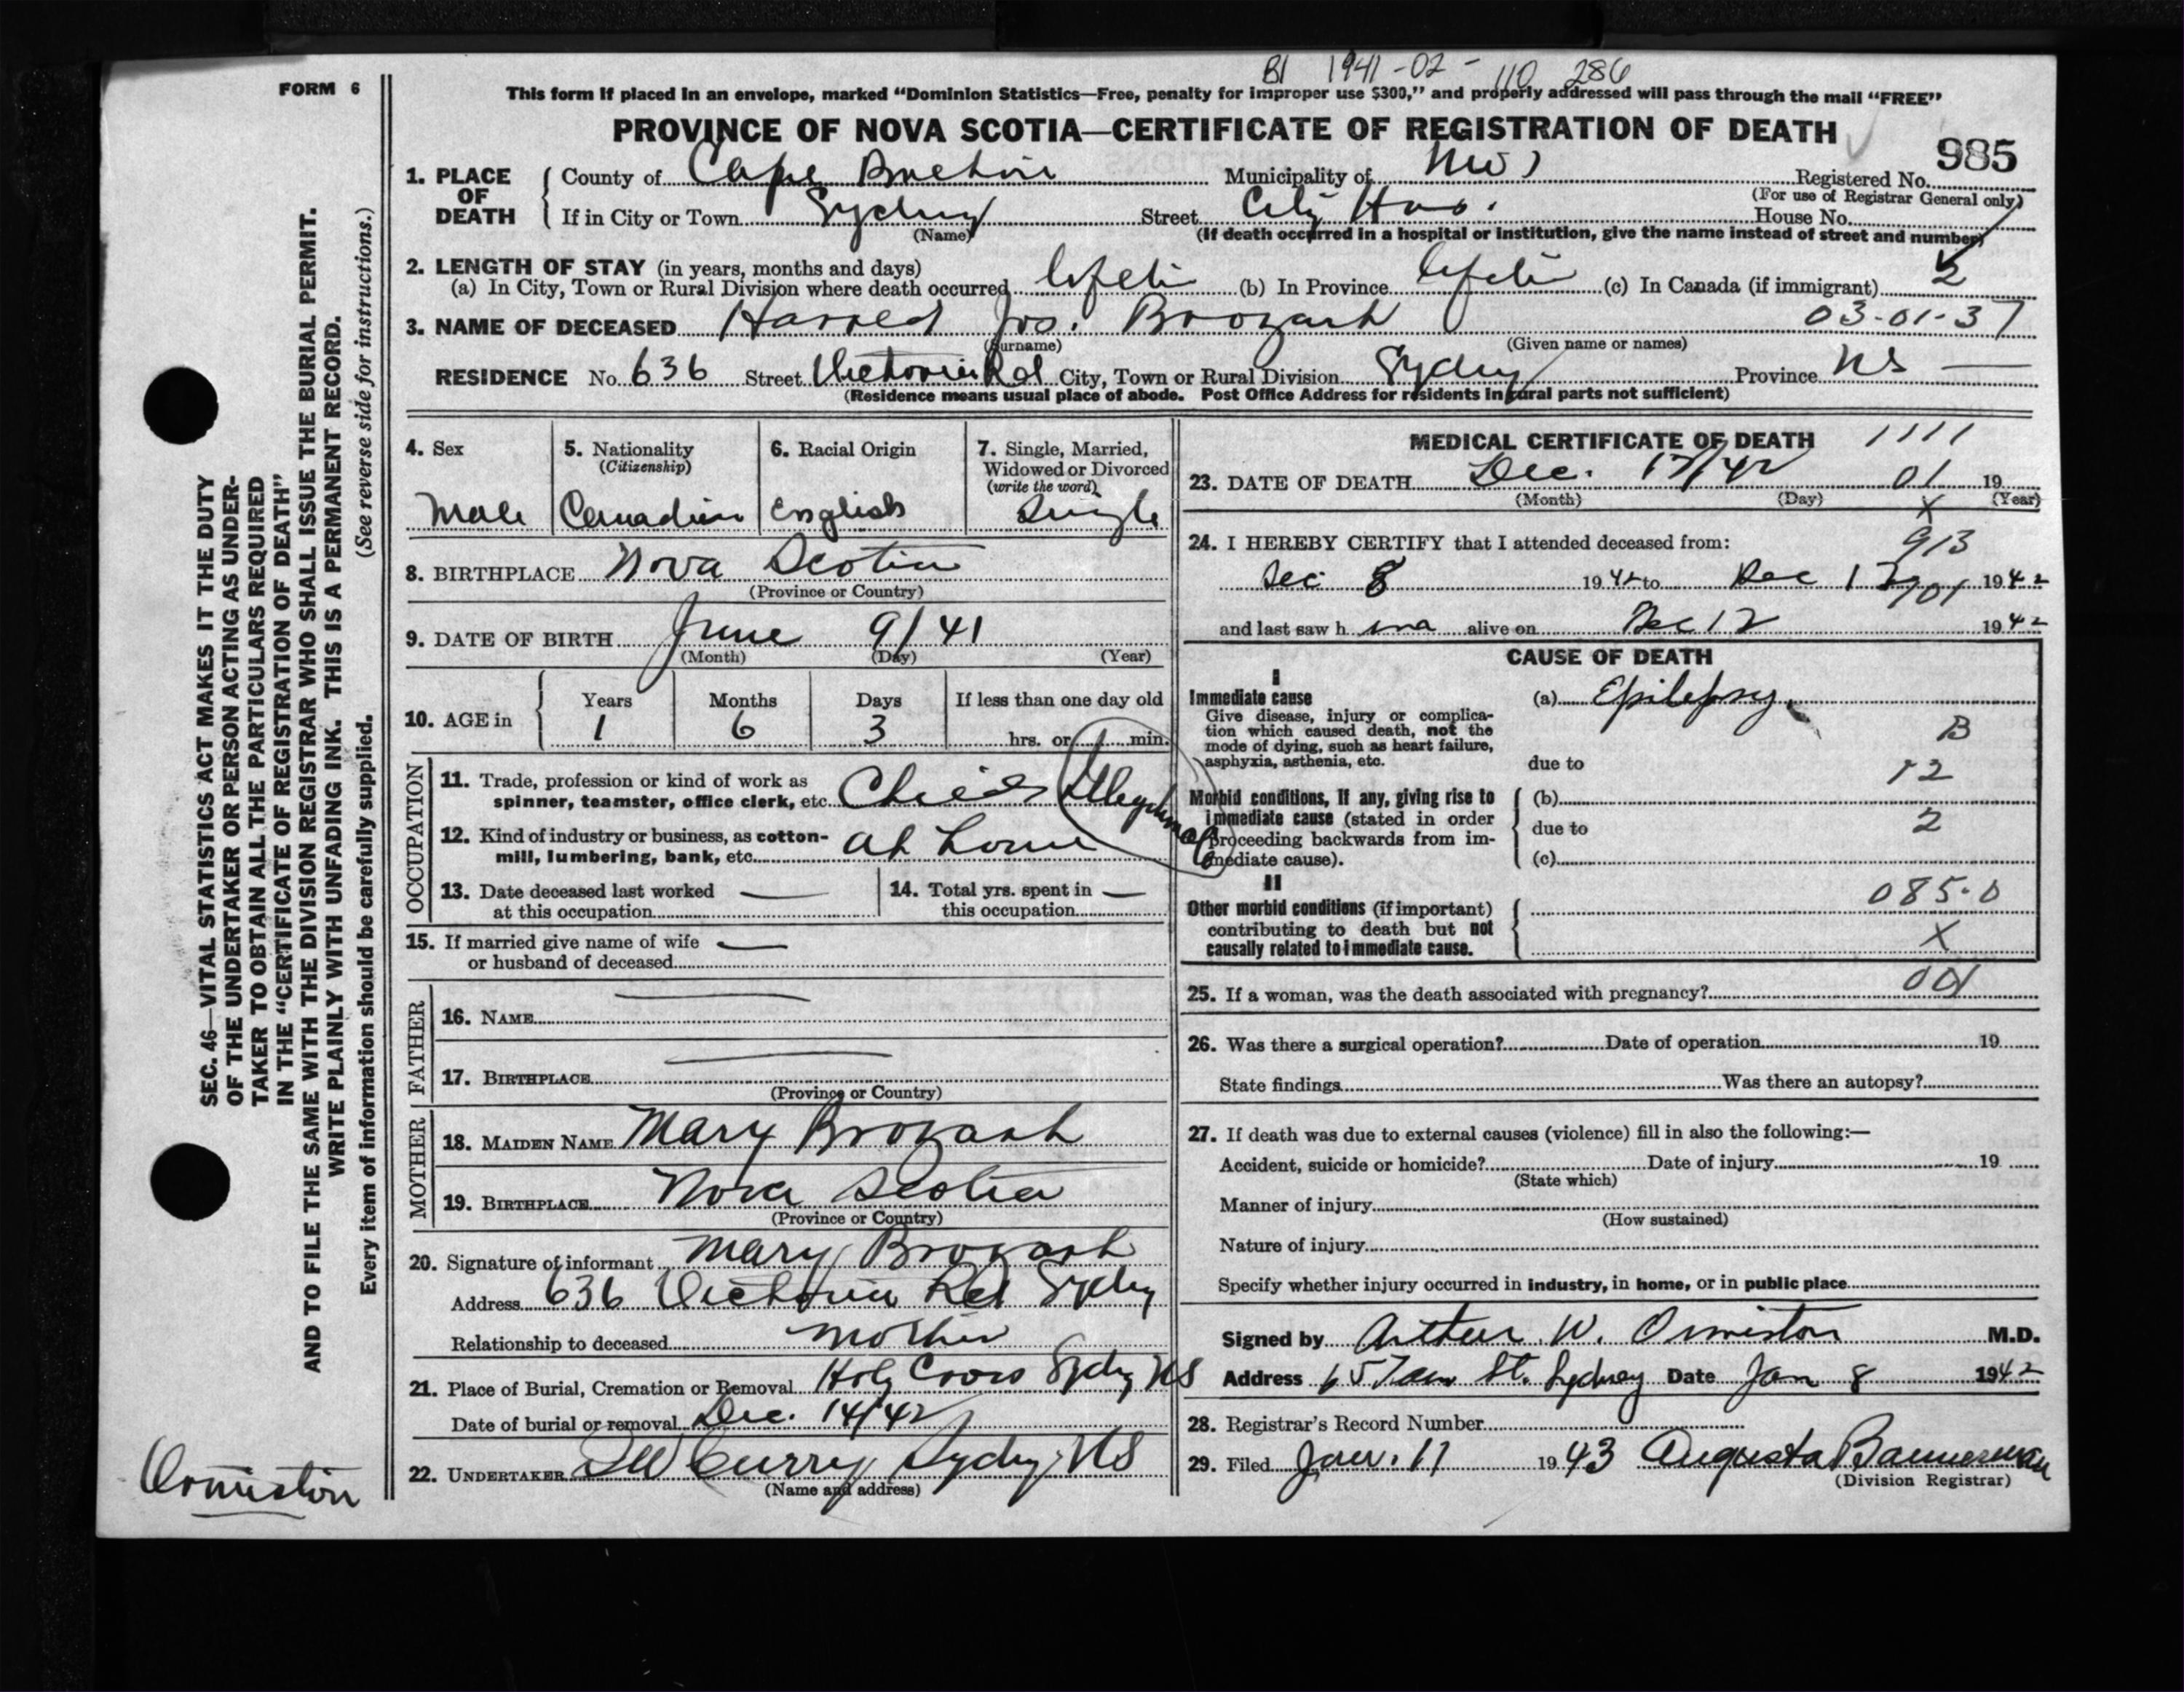 BI 1941-02-110 286
FORM 6
This form if placed in an envelope, marked “Dominion Statistics—Free, penalty for improper use $300,” and properly addressed will pass through the mail “FREE”
PROVINCE OF NOVA SCOTIA—CERTIFICATE OF REGISTRATION OF DEATH
985
1. PLACE OF DEATH
County of Cape Breton Municipality of
Registered No.
(For use of Registrar General only)
If in City or Town Sydney Street City Hos. House No.
(Name) (If death occurred in a hospital or institution, give the name instead of street and number)
2. LENGTH OF STAY (in years, months and days)
(a) In City, Town or Rural Division where death occurred life (b) In Province life (c) In Canada (if immigrant) 2
3. NAME OF DECEASED Harold Jos. Brogash 03-01-37
(Surname) (Given name or names)
RESIDENCE No. 636 Street Victoria Rd City, Town or Rural Division Sydney Province NS —
(Residence means usual place of abode. Post Office Address for residents in rural parts not sufficient)
4. Sex
Male
5. Nationality
(Citizenship)
Canadian
6. Racial Origin
English
7. Single, Married,
Widowed or Divorced
(write the word)
Single
8. BIRTHPLACE Nova Scotia
(Province or Country)
9. DATE OF BIRTH June 9/41
(Month) (Day) (Year)
10. AGE in
Years Months Days If less than one day old
1 6 3 hrs. or min.
OCCUPATION
11. Trade, profession or kind of work as
spinner, teamster, office clerk, etc. Child
Illegitimate
12. Kind of industry or business, as cotton-
mill, lumbering, bank, etc. at home
13. Date deceased last worked —
at this occupation
14. Total yrs. spent in —
this occupation
15. If married give name of wife —
or husband of deceased
FATHER
16. NAME —
17. BIRTHPLACE —
(Province or Country)
MOTHER
18. MAIDEN NAME Mary Brogash
19. BIRTHPLACE Nova Scotia
(Province or Country)
20. Signature of informant Mary Brogash
Address 636 Victoria Rd Sydney
Relationship to deceased mother
21. Place of Burial, Cremation or Removal Holy Cross Sydney NS
Date of burial or removal Dec. 14/42
22. UNDERTAKER Curry Sydney NS
(Name and address)
MEDICAL CERTIFICATE OF DEATH 1111
23. DATE OF DEATH Dec. 12/42 01 19
(Month) (Day) (Year)
X
24. I HEREBY CERTIFY that I attended deceased from: 913
Dec 8 1942 to Dec 12 1942
901
and last saw h im alive on Dec 12 1942
CAUSE OF DEATH
I
Immediate cause
Give disease, injury or complica-
tion which caused death, not the
mode of dying, such as heart failure,
asphyxia, asthenia, etc.
(a) Epilepsy
B
due to 12
Morbid conditions, if any, giving rise to
immediate cause (stated in order
proceeding backwards from im-
mediate cause).
(b)
due to 2
(c)
II
Other morbid conditions (if important)
contributing to death but not
causally related to immediate cause.
085.0
X
25. If a woman, was the death associated with pregnancy? 001
26. Was there a surgical operation? Date of operation 19
State findings Was there an autopsy?
27. If death was due to external causes (violence) fill in also the following:—
Accident, suicide or homicide? Date of injury 19
(State which)
Manner of injury
(How sustained)
Nature of injury
Specify whether injury occurred in industry, in home, or in public place
Signed by Arthur W. Ormiston M.D.
Address St. Sydney Date Jan 8 1942
28. Registrar's Record Number
29. Filed Jan. 11 1943 Augusta Bannerman
(Division Registrar)
SEC. 46—VITAL STATISTICS ACT MAKES IT THE DUTY
OF THE UNDERTAKER OR PERSON ACTING AS UNDER-
TAKER TO OBTAIN ALL THE PARTICULARS REQUIRED
IN THE “CERTIFICATE OF REGISTRATION OF DEATH”
AND TO FILE THE SAME WITH THE DIVISION REGISTRAR WHO SHALL ISSUE THE BURIAL PERMIT.
WRITE PLAINLY WITH UNFADING INK. THIS IS A PERMANENT RECORD.
(See reverse side for instructions.)
Every item of information should be carefully supplied.
Ormiston